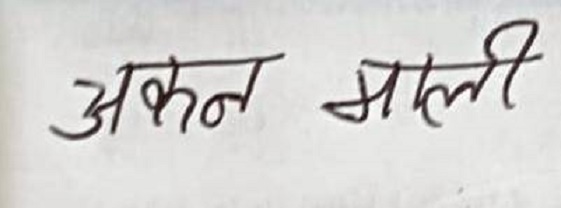 अकन माली